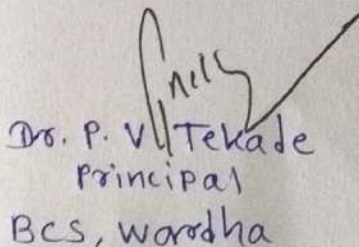 Dr. P. V. Tekade
Principal
BCS, Wardha